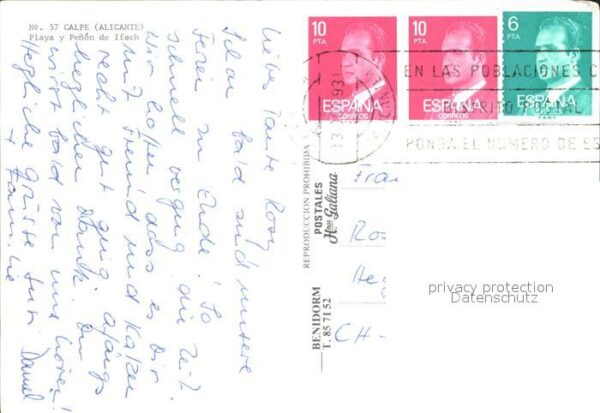 Nº. 57 CALPE (ALICANTE)
Playa y Peñón de Ifach
Liebe Tante Rosy
Schon bald sind unsere
Ferien zu Ende! So
schnell verging die Zeit.
Wir hoffen dass es Dir
mit Freund und Katzen
recht gut ging
herzlichen Dank. Du
wirst bald von uns hören!
Herzliche Grüsse
+ Familie Daniel
REPRODUCCION PROHIBIDA
POSTALES
Hnos Galiana
BENIDORM
T. 85 71 52
10
PTA
ESPAÑA
CORREOS
10
PTA
ESPAÑA
CORREOS
6
PTA
ESPAÑA
EN LAS POBLACIONES C
DISTRITO POSTAL
PONGA EL NUMERO DE ES
Frau
Ros
He
CH-
privacy protection
Datenschutz